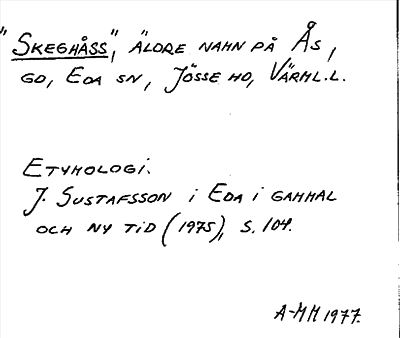 "SKEGHÅSS", ÄLDRE NAMN PÅ ÅS,
GD, EDA SN, JÖSSE HD, VÄRML.L.
ETYMOLOGI.
J. GUSTAFSSON i EDA i GAMMAL
OCH NY TiD (1975), S. 104.
A-MM 1977.